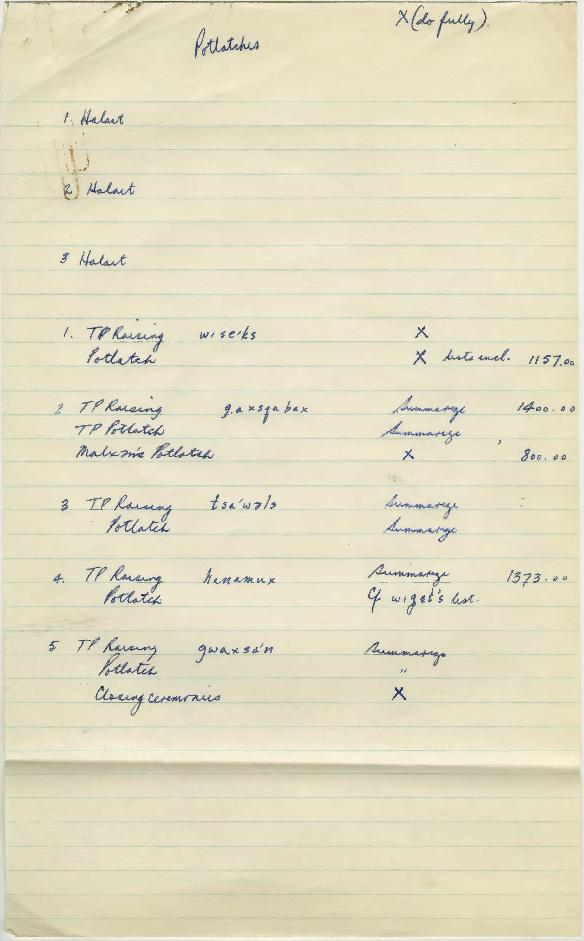 X (do fully).
Potlatches
1. Halait
2 Halait
3 Halait
1. TP Raising wiseiks X
Potlatch X lists incl. 1157.00
2 TP Raising gaxsgabax Summarize 1400.00
TP Potlatch Summarize
Potlatch X 800.00
3 TP Raising tsa'wəls Summarize
Potlatch Summarize
4. TP Raising hanamux Summarize 1373.00
Potlatch Cf wiget's list.
5 TP Raising gwaxsa'n Summarize
Potlatch "
Closing ceremonies X